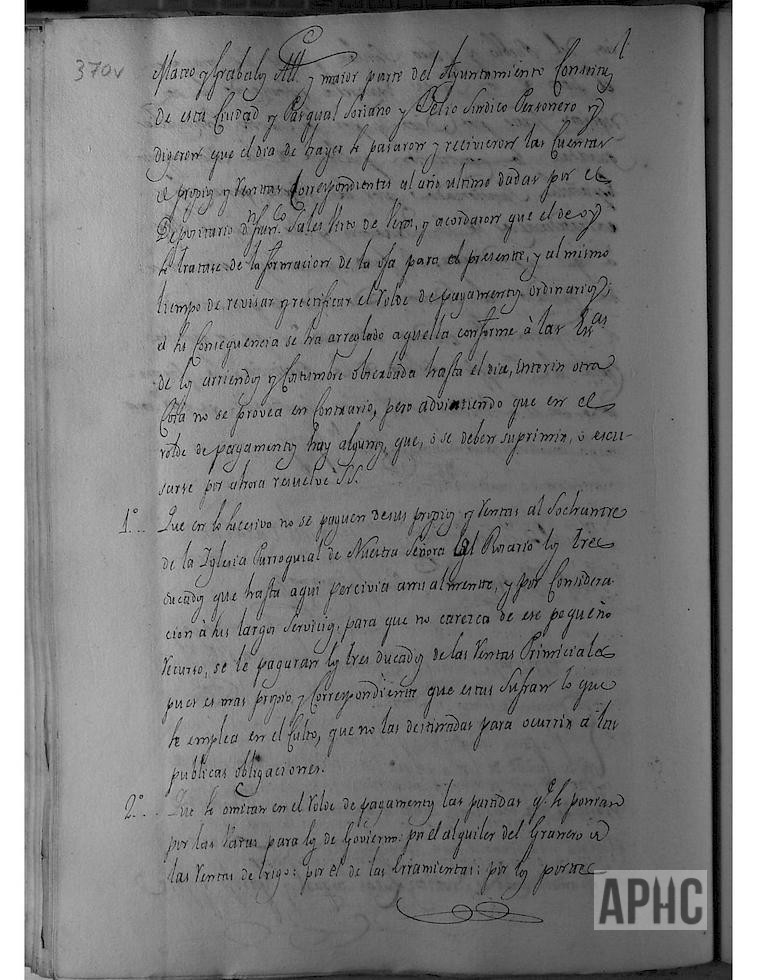 370v
Mateo y Grabalos All. y maior parte del Ayuntamiento Constituz
de esta Ciudad y Pasqual Soriano y Pelio Sindico Personero y
digeron que el dia de hayer se pasaron y recivieron las Cuentas
d propios y Rentas Correspondientes al año ultimo dadas por el
Depositario dn Franco Sales de y acordaron que el de oy
se tratase de la formacion de la para el presente, y al mismo
tiempo de revisar y rectificar el Rolde de pagamentos ordinarios;
su Consequencia se ha arreglado aquella conforme à las
de los arriendos y Costumbre obserbada hasta el dia, interin otra
Cosa no se provea en Contrario, pero advirtiendo que en el
rolde de pagamentos hay algunos, que, o se deben suprimir, o escu-
sarse por ahora resuelve SS.
1º.. Que en lo sucesivo no se paguen de sus propios y Rentas al Sochantre
de la Iglesia Parroquial de Nuestra Señora del Rosario los tres
ducados que hasta aqui percivia anualmente, y por Considera-
cion à sus largos Servicios, para que no carezca de ese pequeño
recurso, se le pagaran los tres ducados de las Rentas Primiciales
pues es mas propio y Correspondiente que estas Sufran lo que
se emplea en el Culto, que no las destinadas para ocurrir a las
publicas obligaciones.
2º... Que se omitan en el Rolde de pagamentos las partidas qe. se ponian
por las Varas para los de Govierno: pr el alquiler del Granero d
las Rentas de trigo: por el de las Erramientas: por los portes
APHC